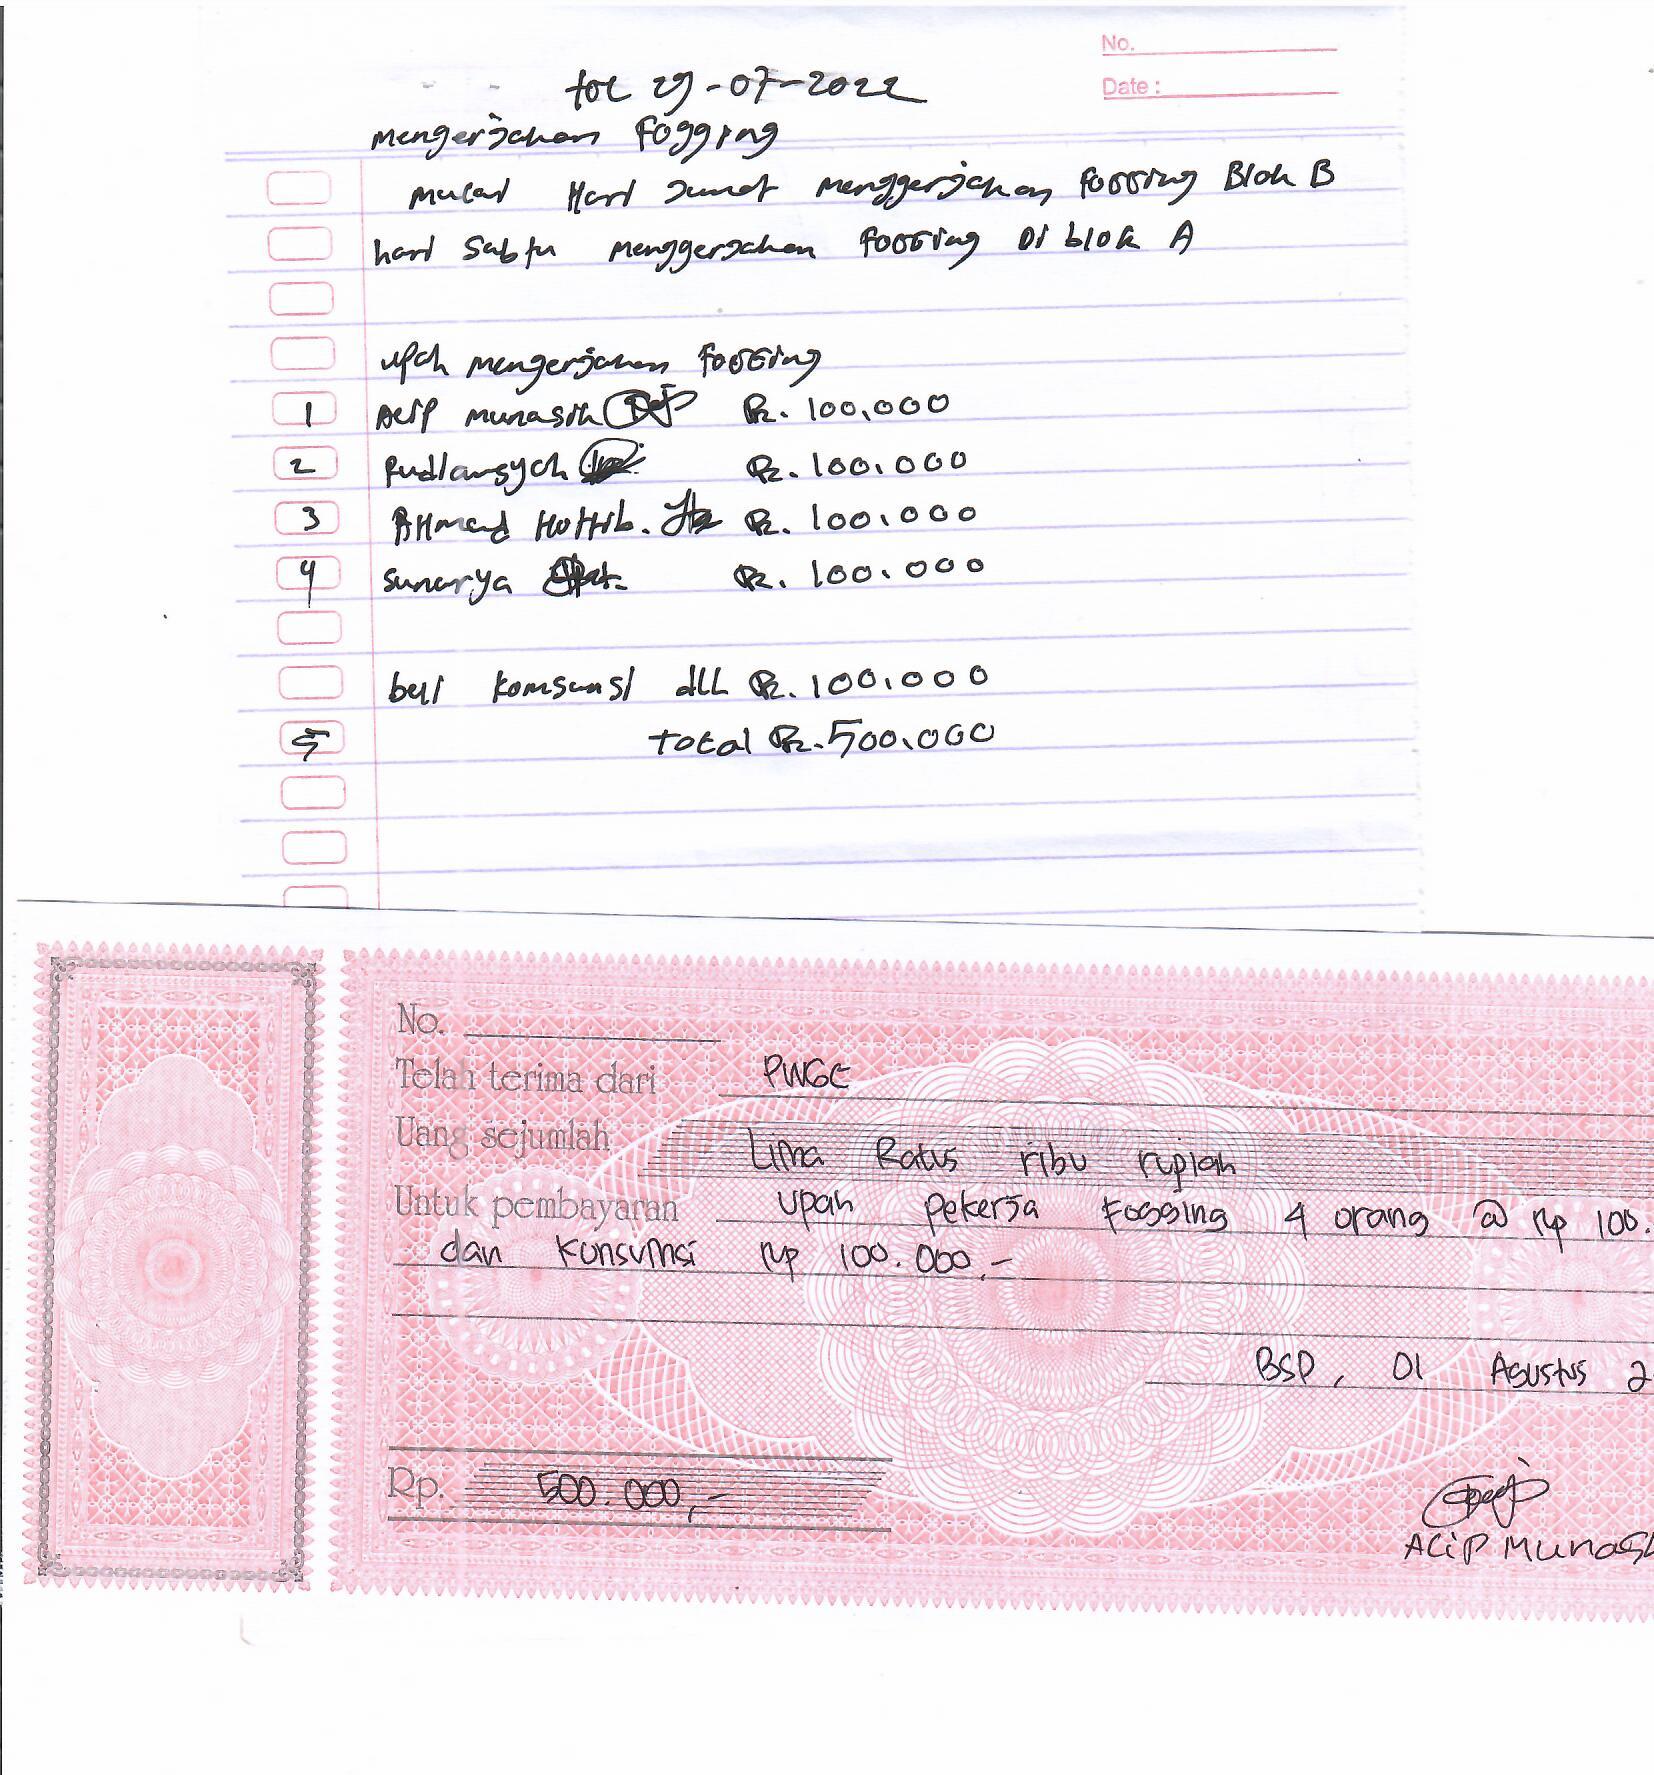 No.
Date :
tgl 29-07-2022
mengerjakan Fogging
mulai Hari Jumat menggerjakan fogging Blok B
hari Sabtu menggerjakan fogging Di blok A
upah mengerjakan fogging
1 Acip munasih R. 100,000
2 Rudiansyah R. 100.000
3 AHmad Hottib. R. 100.000
4 Sunarya R. 100.000
beli komsumsi dll R. 100.000
5 total R. 500.000
No.
Telah terima dari PWGC
Uang sejumlah Lima Ratus ribu rupiah
Untuk pembayaran upah pekerja fogging 4 orang @ Rp 100.
dan konsumsi Rp 100.000,-
BSP, 01 Agustus 2
Rp. 500.000,-
Acip Munas